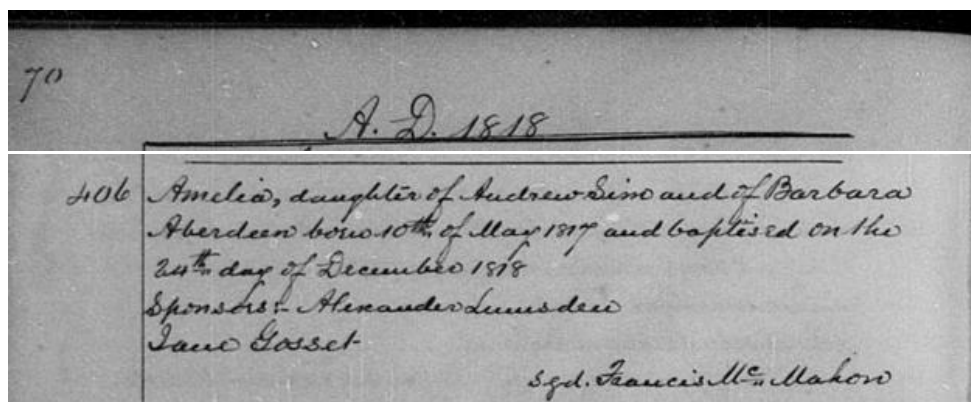 70
A. D. 1818
406 Amelia, daughter of Andrew Sim and of Barbara
Aberdeen born 10th of May 1817 and baptised on the
24th day of December 1818
Sponsors:- Alexander Lumsden
Jane Gosset
sgd. Francis Mc Mahon